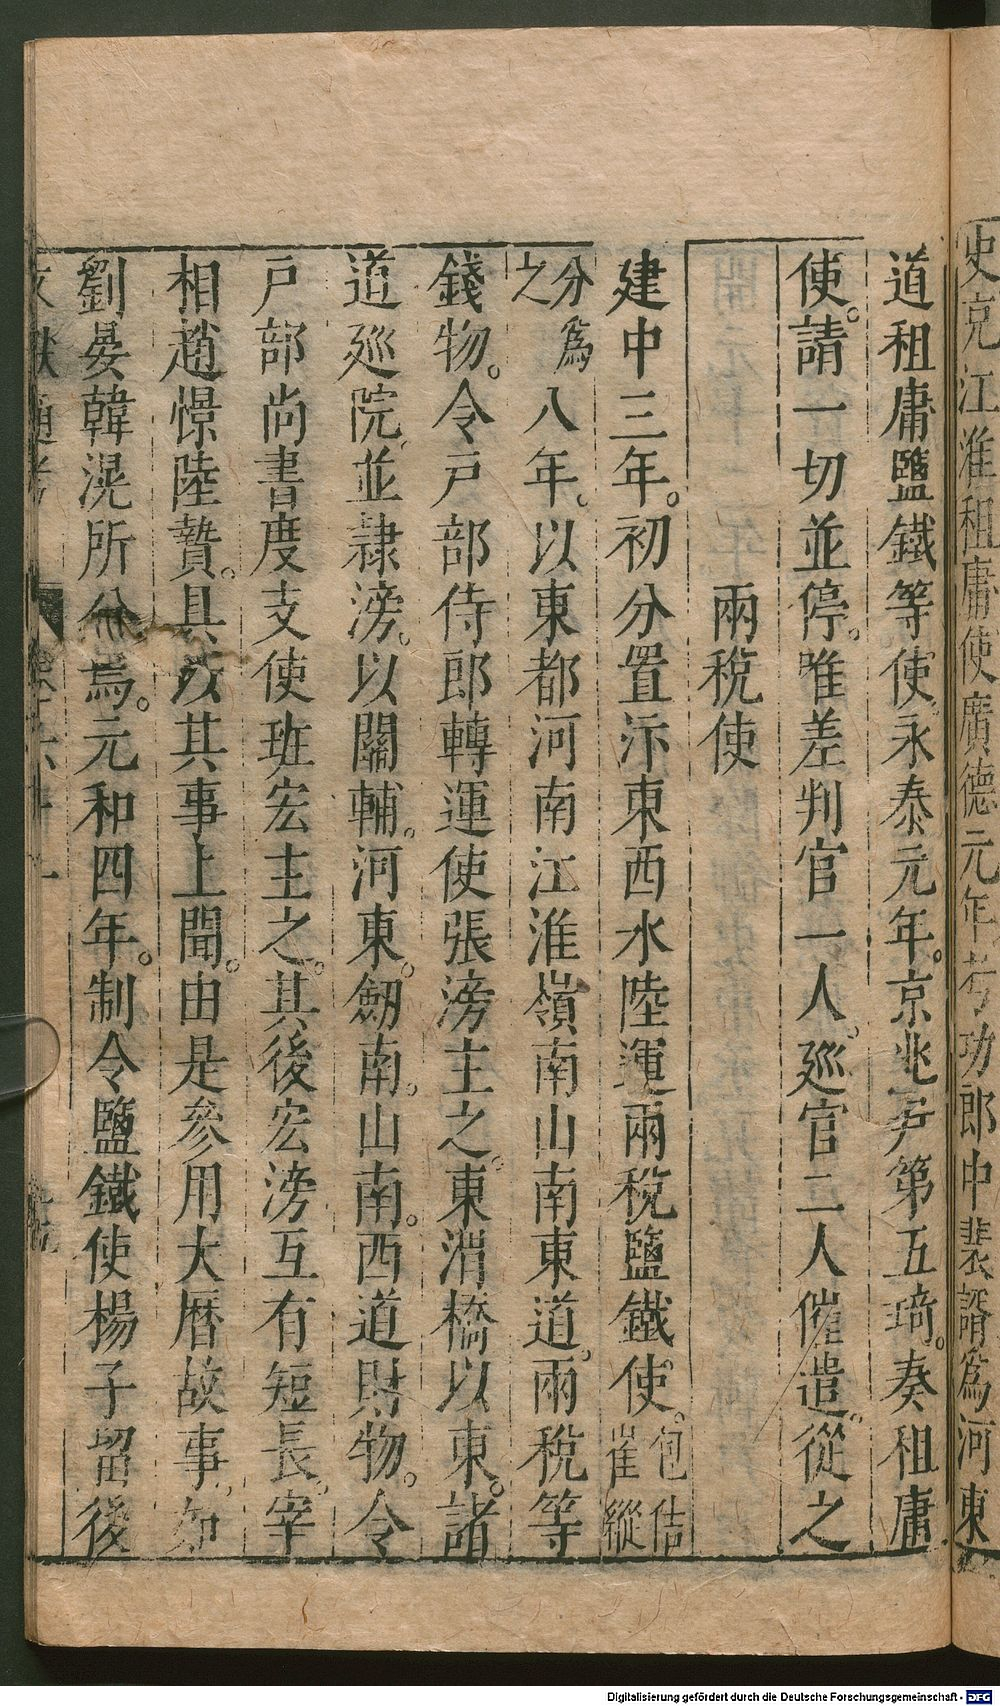 史克江淮租庸使廣德元年考功郎中裴諝為河東
道租庸鹽鐵等使。永泰元年。京兆尹第五琦。奏租庸
使。請一切並停。唯差判官一人。廵官二人催遣。從之
兩稅使
建中三年。初分置汴東西水陸運兩稅鹽鐵使。包佶崔縱
分為之八年。以東都河南江淮嶺南山南東道。兩稅等
錢物。令戶部侍郎轉運使張滂主之。東渭橋以東。諸
道廵院。並隷滂。以關輔。河東。劒南。山南。西道財物。令
戶部尚書度支使班宏主之。其後宏滂互有短長。宰
相趙憬陸贄。具以其事上聞。由是參用大曆故事。如
劉晏韓滉所分焉。元和四年。制令鹽鐵使楊子留後
文獻通考
Digitalisierung gefördert durch die Deutsche Forschungsgemeinschaft - DFG